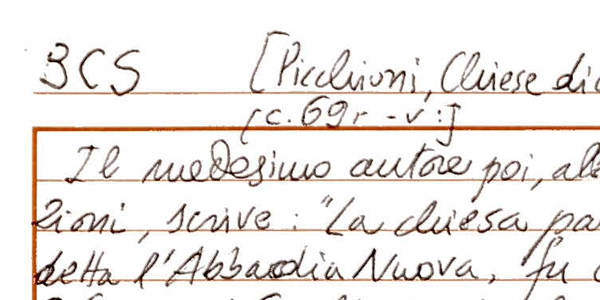 BCS [Picchioni, Chiese di
[c. 69r - v:]
Il medesimo autore poi, al
zioni, scrive: "La chiesa pa
detta l'Abbadia Nuova, fu